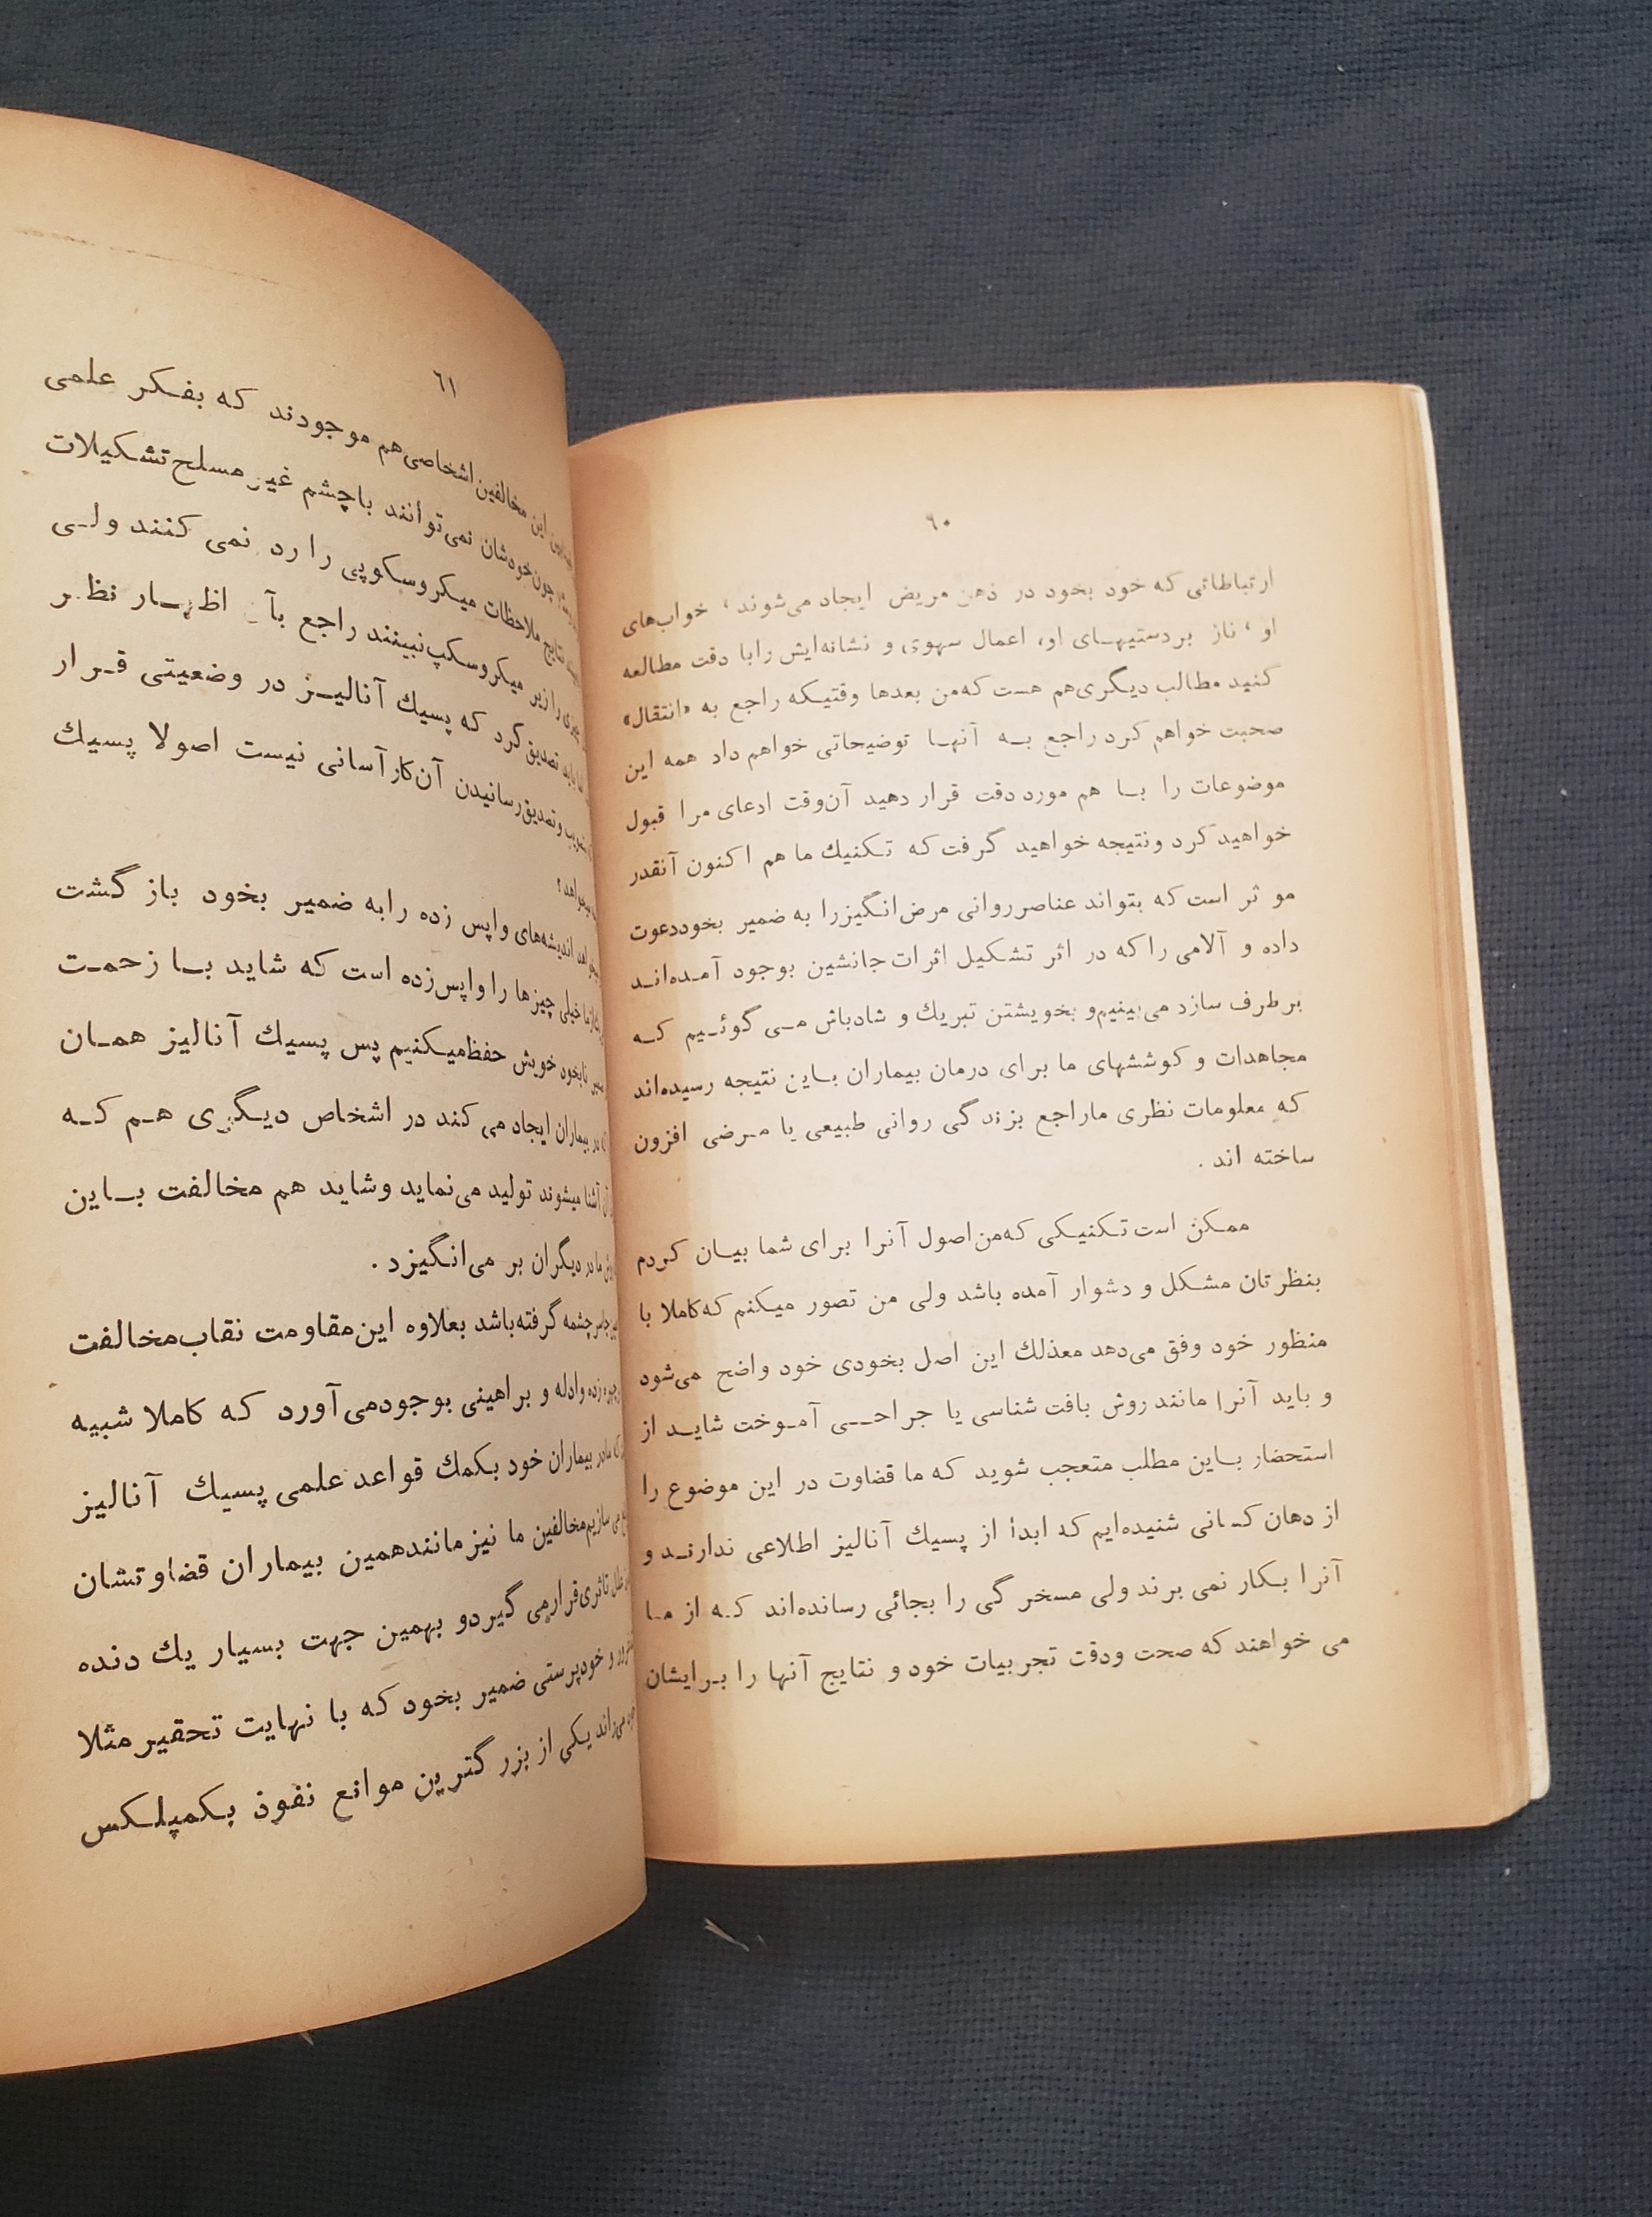 ٦٠
ارتباطاتی که خود بخود در ذهن مریض ایجاد می‌شوند، خواب‌های
او، ناز بردستیهای او، اعمال سهوی و نشانه‌ایش رابا دقت مطالعه
کنید مطالب دیگری‌هم هست که‌من بعدها وقتیکه راجع به «انتقال»
صحبت خواهم کرد راجع به آنها توضیحاتی خواهم داد همه این
موضوعات را با هم مورد دقت قرار دهید آن‌وقت ادعای مرا قبول
خواهید کرد ونتیجه خواهید گرفت که تکنیك ما هم اکنون آنقدر
مو ثر است که بتواند عناصر روانی مرض‌انگیز را به ضمیر بخود دعوت
داده و آلامی را که در اثر تشکیل اثرات جانشین بوجود آمده‌اند
بر طرف سازد می‌بینیم‌و بخویشتن تبریك و شادباش می گوئیم که
مجاهدات و کوششهای ما برای درمان بیماران باین نتیجه رسیده‌اند
که معلومات نظری ماراجع بزندگی روانی طبیعی یا مرضی افزون
ساخته اند .
ممکن است تکنیکی که‌من اصول آنرا برای شما بیان کردم
بنظرتان مشکل و دشوار آمده باشد ولی من تصور میکنم که کاملا با
منظور خود وفق می‌دهد معذلك این اصل بخودی خود واضح می‌شود
و باید آنرا مانند روش بافت شناسی یا جراحی آموخت شاید از
استحضار باین مطلب متعجب شوید که ما قضاوت در این موضوع را
از دهان کسانی شنیده‌ایم که ابدأ از پسیك آنالیز اطلاعی ندارند و
آنرا بکار نمی برند ولی مسخر گی را بجائی رسانده‌اند که از ما
می خواهند که صحت ودقت تجربیات خود و نتایج آنها را برایشان
٦١
این مخالفین اشخاصی هم موجودند که بفکر علمی
چون خودشان نمی‌توانند باچشم غیر مسلح تشکیلات
نتایج ملاحظات میکروسکوپی را رد نمی کنند ولی
را زیر میکروسکپ نبینند راجع بآن اظهار نظر
باید تصدیق کرد که پسیك آنالیز در وضعیتی قرار
و تصدیق رسانیدن آن کار آسانی نیست اصولا پسیك
میخواهد؟
اندیشه‌های واپس زده رابه ضمیر بخود باز گشت
خیلی چیزها را واپس‌زده است که شاید با زحمت
نابخود خویش حفظ میکنیم پس پسیك آنالیز همان
در بیماران ایجاد می کند در اشخاص دیگری هم که
آشنا میشوند تولید می‌نماید وشاید هم مخالفت باین
ما در دیگران بر می‌انگیزد .
سرچشمه گرفته‌باشد بعلاوه این مقاومت نقاب مخالفت
زده وادله و براهینی بوجود می آورد که کاملا شبیه
بیماران خود بکمك قواعد علمی پسیك آنالیز
می سازیم مخالفین ما نیز مانند همین بیماران قضاوتشان
تاثری قرار می گیردو بهمین جهت بسیار یك دنده
و خودپرستی ضمیر بخود که با نهایت تحقیر مثلا
یکی از بزر گترین موانع نفوذ بکمپلکس